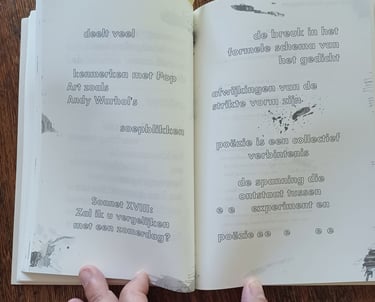 deelt veel
kenmerken met Pop
Art zoals
Andy Warhol's
soepblikken
Sonnet XVIII:
Zal ik u vergelijken
met een zomerdag?
de break in het
formele schema van
het gedicht
afwijkingen van de
strikte vorm zijn.
poëzie is een collectief
verbintenis
de spanning die
ontstaat tussen
e e experiment en
poëzie e e e e e